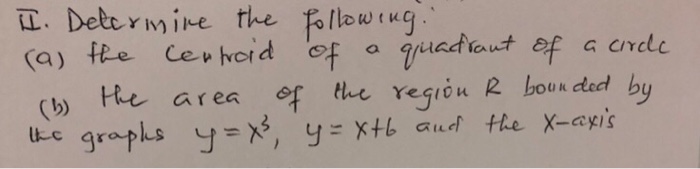 II. Determine the following.
(a) the centroid of a quadrant of a circle
(b) the area of the region R bounded by
the graphs y = x³, y = x+6 and the x-axis